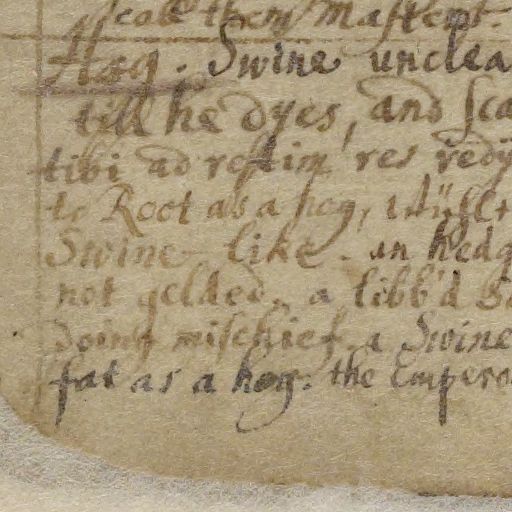 scall them Mast
Hog. Swine unclea
till he dyes, and sca
tibi ad restim res redi
to Root as a hog,
Swine like. an hedg
not gelded. a libb'd
doing mischief. a Swine
fat as a hog. the Empero